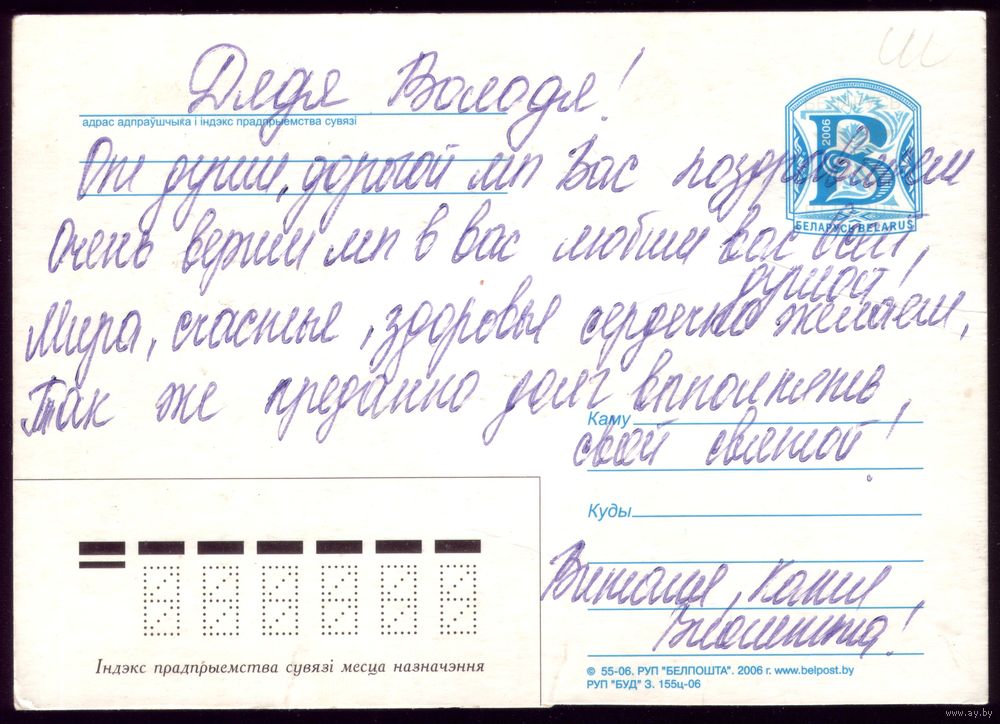 Дядя Володя!
адрас адпраўшчыка і індэкс прадпрыемства сувязі
2006
B
БЕЛАРУСЬ BELARUS
От души, дорогой мы Вас поздравляем
Очень верим мы в вас любим вас всей
душой!
Мира, счастье, здоровье сердечно желаем,
Так же преданно долг выполнять
Каму
свой святой!
Куды
Виталия, Катя
Індэкс прадпрыемства сувязі месца назначэння
© 55-06. РУП "БЕЛПОШТА". 2006 г. www.belpost.by
РУП "БУД" З. 155ц-06
www.ay.by